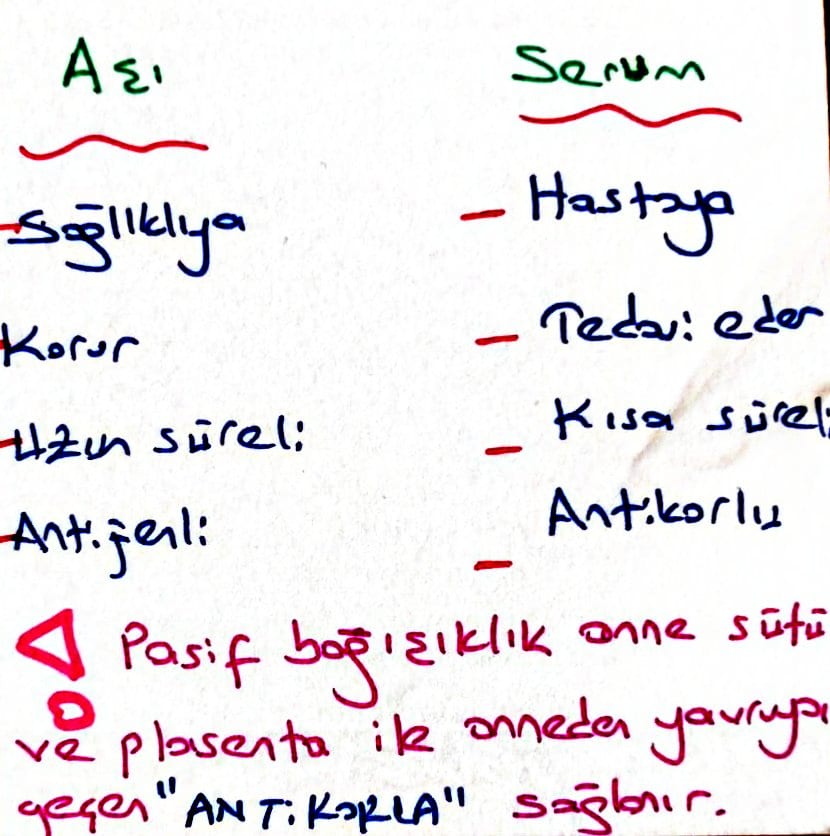 Aşı
Serum
- Sağlıklıya
- Hastaya
- Korur
- Tedavi eder
- Uzun süreli
- Kısa süreli
- Antijenli
- Antikorlu
Pasif bağışıklık anne sütü
ve plasenta ile anneden yavruya
geçen "ANTiKORLA" sağlanır.